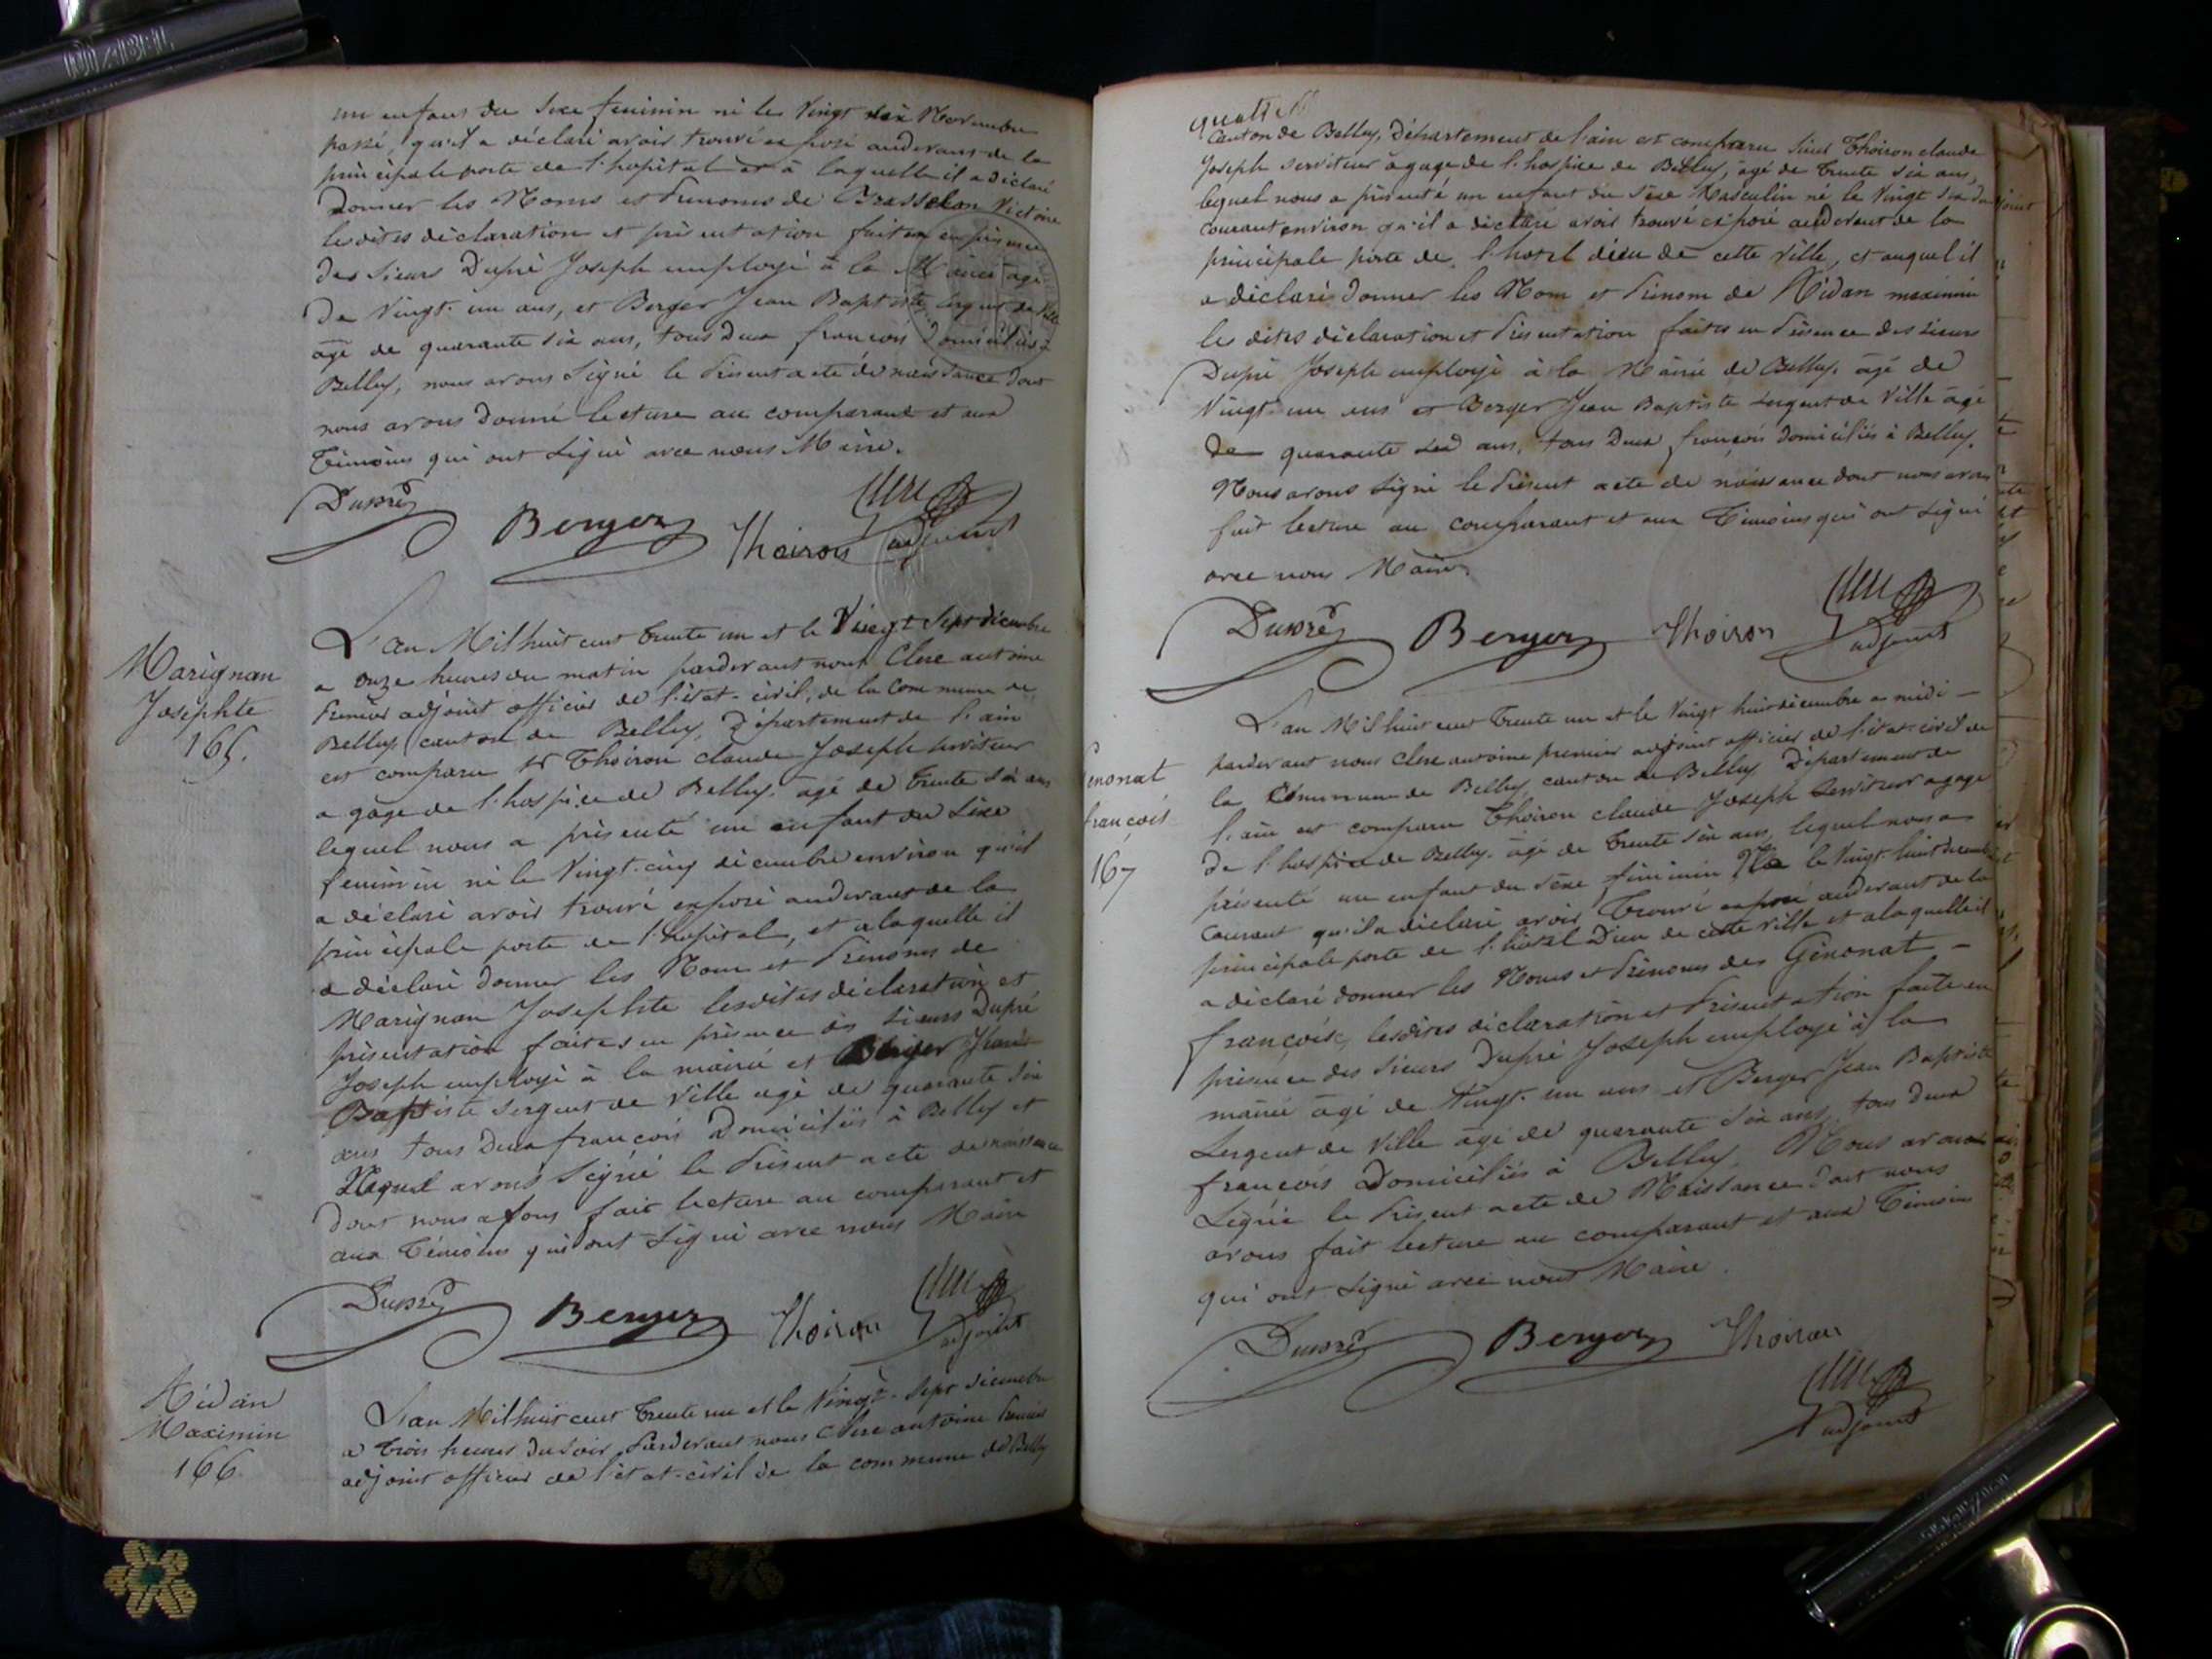 un enfant du sexe feminin né le Vingt six Novembre
passé, qu'il a déclaré avoir trouvé exposé audevant de la
principale porte de l'hopital et à laquelle il a déclaré
Donner les Noms et Prenoms de Brasselon Victoire
lesdites déclaration et présentation faites en présence
des Sieurs Dupré Joseph employé à la Mairie agé
De Vingt-un ans, et Berger Jean Baptiste sergent de Ville
agé de quarante six ans, tous deux françois Domiciliés à
Belley, nous avons Signé le Présent acte de naissance dont
nous avons Donné lecture au comparant et aux
Témoins qui ont signé avec nous Maire.
Dupré Berger Thoiron Clerc
adjoint
Marignan
Josephte
165.
L'an Mil huit cent trente un et le Vingt Sept décembre
a onze heures du matin pardevant nous Clerc antoine
Premier adjoint officier de l'état-civil, de la Commune de
Belley canton de Belley, Département de l'ain
est comparu sr Thoiron claude Joseph serviteur
a gage de l'hospice de Belley, agé de trente six ans
lequel nous a présenté un enfant du sexe
feminin né le Vingt-cinq décembre environ qu'il
a déclaré avoir trouvé exposé audevant de la
principale porte de l'hopital, et a laquelle il
a déclaré donner les Nom et Prenoms de
Marignan Josephte lesdites déclaration et
présentation faites en présence des sieurs Dupré
Joseph employé à la mairie et Berger Jean
Baptiste Sergent de Ville agé de quarante six
ans tous deux françois Domiciliés à Belley et
avons Signé le Présent acte de naissance
Dont nous avons fait lecture au comparant et
aux Témoins qui ont signé avec nous Maire
Dupré Berger Thoiron Clerc
adjoint
Nidan
Maximin
166
L'an Mil huit cent trente un et le Vingt-Sept décembre
a trois heures du soir, Pardevant nous Clerc antoine Premier
adjoint officier de l'état-civil de la commune de Belley
Canton de Belley, Département de l'ain est comparu Sieur Thoiron claude
Joseph serviteur à gage de l'hospice de Belley, agé de trente six ans,
lequel nous a présenté un enfant du sexe Masculin né le Vingt six du
courant environ qu'il a déclaré avoir trouvé exposé audevant de la
principale porte de l'hotel dieu de cette ville, et auquel il
a déclaré Donner les Nom et Prénom de Nidan maximin
les dites déclaration et Présentation faites en Présence des sieurs
Dupré Joseph employé à la Mairie de Belley, agé de
Vingt-un ans et Berger Jean Baptiste sergent de Ville agé
De quarante six ans, tous deux françois domiciliés à Belley.
Nous avons signé le Présent acte de naissance dont nous avons
fait lecture au comparant et aux Témoins qui ont signé
avec nous Maire.
Dupré Berger Thoiron Clerc
adjoint
Genonat
françoise
167
L'an Mil huit cent trente un et le Vingt huit décembre a midi —
pardevant nous Clerc antoine premier adjoint officier de l'état-civil de
la Commune de Belley, canton de Belley Département de
l'ain est comparu Thoiron claude Joseph serviteur a gage
De l'hospice de Belley, agé de trente six ans, lequel nous a
présenté un enfant du sexe feminin Né le Vingt-huit decembre
courant qu'il a déclaré avoir trouvé exposé audevant de la
principale porte de l'hotel Dieu de cette ville et a laquelle il
a déclaré donner les Noms et Prénoms des Génonat —
françoise, lesdites déclaration et Présentation faite en
présence des Sieurs Dupré Joseph employé à la
mairie agé de Vingt-un ans et Berger Jean Baptiste
Sergent de Ville agé de quarante six ans, tous deux
françois Domiciliés à Belley. Nous avons
Signé le Présent acte de Naissance dont nous
avons fait lecture au comparant et aux Témoins
qui ont signé avec nous Maire.
Dupré Berger Thoiron
Clerc
adjoint